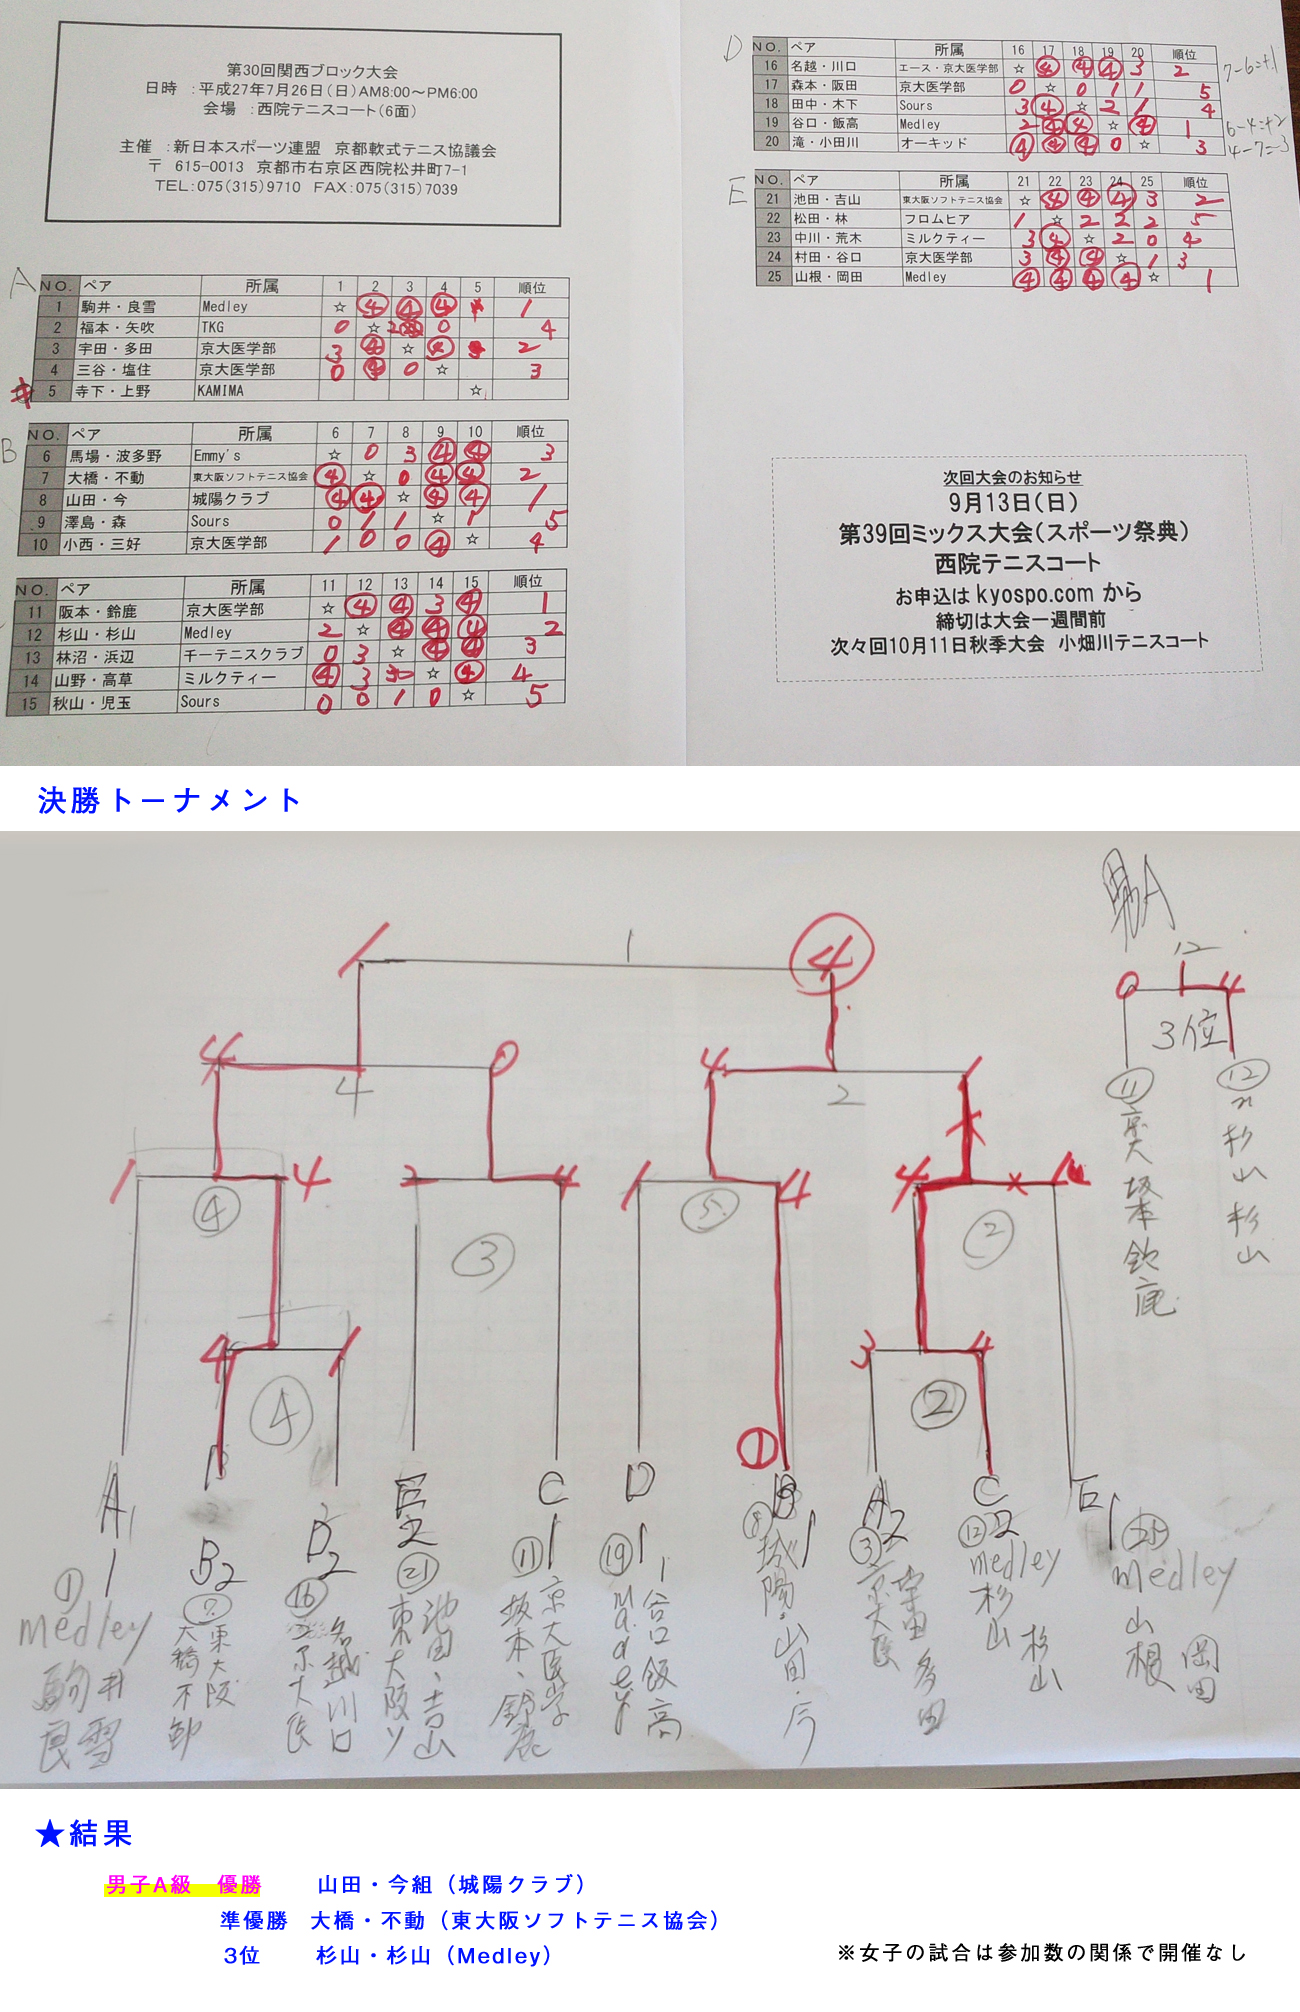 第30回関西ブロック大会
日時 :平成27年7月26日(日)AM8:00～PM6:00
会場 :西院テニスコート(6面)
主催 :新日本スポーツ連盟 京都軟式テニス協議会
〒 615-0013 京都市右京区西院松井町7-1
TEL:075(315)9710 FAX:075(315)7039
A
NO. ペア 所属 1 2 3 4 5 順位
1 駒井・良雪 Medley ☆ ④ ④ ④ 1
2 福本・矢吹 TKG 0 ☆ 0 4
3 宇田・多田 京大医学部 3 ④ ☆ ④ 2
4 三谷・塩住 京大医学部 0 ④ 0 ☆ 3
5 寺下・上野 KAMIMA ☆
B
NO. ペア 所属 6 7 8 9 10 順位
6 馬場・波多野 Emmy's ☆ 0 3 ④ ④ 3
7 大橋・不動 東大阪ソフトテニス協会 ④ ☆ 0 ④ ④ 2
8 山田・今 城陽クラブ ④ ④ ☆ ④ ④ 1
9 澤島・森 Sours 0 1 1 ☆ 1 5
10 小西・三好 京大医学部 1 0 0 ④ ☆ 4
NO. ペア 所属 11 12 13 14 15 順位
11 阪本・鈴鹿 京大医学部 ☆ ④ ④ 3 ④ 1
12 杉山・杉山 Medley 2 ☆ ④ ④ ④ 2
13 林沼・浜辺 チーテニスクラブ 0 3 ☆ ④ ④ 3
14 山野・高草 ミルクティー ④ 3 ☆ ④ 4
15 秋山・児玉 Sours 0 0 1 0 ☆ 5
D
NO. ペア 所属 16 17 18 19 20 順位
16 名越・川口 エース・京大医学部 ☆ ④ ④ ④ 3 2
7-6=+1
17 森本・阪田 京大医学部 0 ☆ 0 1 1 5
18 田中・木下 Sours 3 ④ ☆ 2 1 4
19 谷口・飯高 Medley 2 ④ ④ ☆ ④ 1
6-4=+2
20 滝・小田川 オーキッド ④ ④ ④ 0 ☆ 3
4-7=-3
E
NO. ペア 所属 21 22 23 24 25 順位
21 池田・吉山 東大阪ソフトテニス協会 ☆ ④ ④ ④ 3 2
22 松田・林 フロムヒア 1 ☆ 2 2 2 5
23 中川・荒木 ミルクティー 3 ④ ☆ 2 0 4
24 村田・谷口 京大医学部 3 ④ ④ ☆ 1 3
25 山根・岡田 Medley ④ ④ ④ ④ ☆ 1
次回大会のお知らせ
9月13日(日)
第39回ミックス大会(スポーツ祭典)
西院テニスコート
お申込は kyospo.com から
締切は大会一週間前
次々回10月11日秋季大会 小畑川テニスコート
決勝トーナメント
男A
1 1 ④
12
0 4
3位
4 0 4 1
4 2
⑪ ⑫
京大 坂本 鈴鹿
杉山 杉山
1 4 2 4 1 4 4 1
④ ③ ⑤ ②
4 1 3 4
④ ① ②
A1 B2 D2 E2 C1 D1 B1 A2 C2 E1
① medley 駒井 良雪
⑦ 東大阪 大橋不動
⑯ 名越 川口
㉑ 東大阪ソ 池田、吉山
⑪ 京大医学 坂本、鈴鹿
⑲ 谷口 飯高
⑧ 城陽・山田・今
③ 京大医 宇田 多田
⑫ medley 杉山 杉山
㉕ medley 山根 岡田
★結果
男子A級 優勝 山田・今組（城陽クラブ）
準優勝 大橋・不動（東大阪ソフトテニス協会）
3位 杉山・杉山（Medley）
※女子の試合は参加数の関係で開催なし